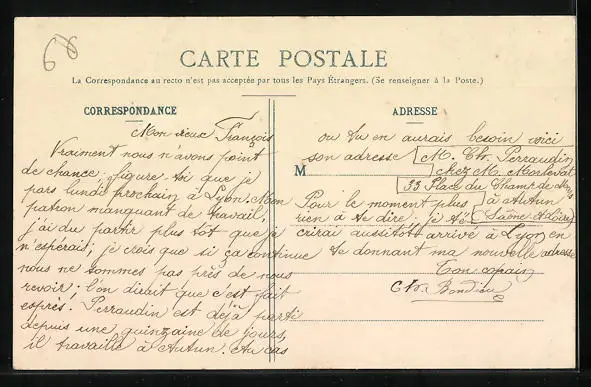 68
CARTE POSTALE
La Correspondance au recto n'est pas acceptée par tous les Pays Étrangers. (Se renseigner à la Poste.)
CORRESPONDANCE
Mon vieux François
Vraiment nous n'avons point
de chance; figure toi que je
pars lundi prochain à Lyon. Mon
patron manquant de travail,
j'ai du partir plus tôt que je
n'espérais; je crois que si ça continue
nous ne sommes pas près de nous
revoir; l'on dirait que c'est fait
esprès. Perraudin est déjà parti
depuis une quinzaine de jours,
il travaille à Autun. Au cas
ADRESSE
ou tu en aurais besoin voici
son adresse M. Ch. Perraudin
M chez M.
33 Place du Champ de Mars
Pour le moment plus à Autun
rien à te dire. je t'é Saône & Loire
crirai aussitôt arrivé à Lyon en
te donnant ma nouvelle adresse
Ton copain
Ch. Bondieu